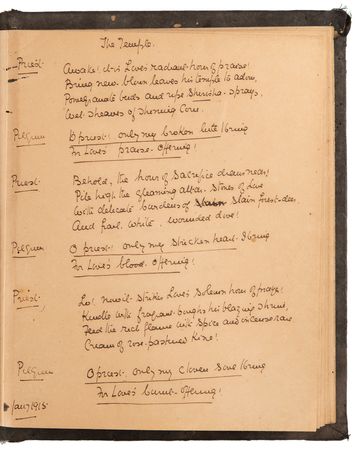 The Temple.
Priest. Awake! it is Love's radiant hour of praise!
Bring new blown leaves his temple to adorn,
Pomegranate buds and ripe Shirisha-sprays,
Wet sheaves of shining corn.
Pilgrim O priest! only my broken lute I bring
For Love's praise-offering!
Priest. Behold, the hour of sacrifice draws near!
Pile high the gleaming altar-stones of Love
With delicate burdens of slain slain forest-deer,
And frail, white, wounded dove!
Pilgrim O priest! only my stricken heart I bring
For Love's blood-offering!
Priest. Lo! now it strikes Love's solemn hour of prayer!
Kindle with fragrant boughs his blazing shrine,
Feed the rich flame with spice and incense rare
Cream of rose-pastured kine!
Pilgrim O priest! only my cloven soul I bring
For Love's burnt-offering!
Jan 1915